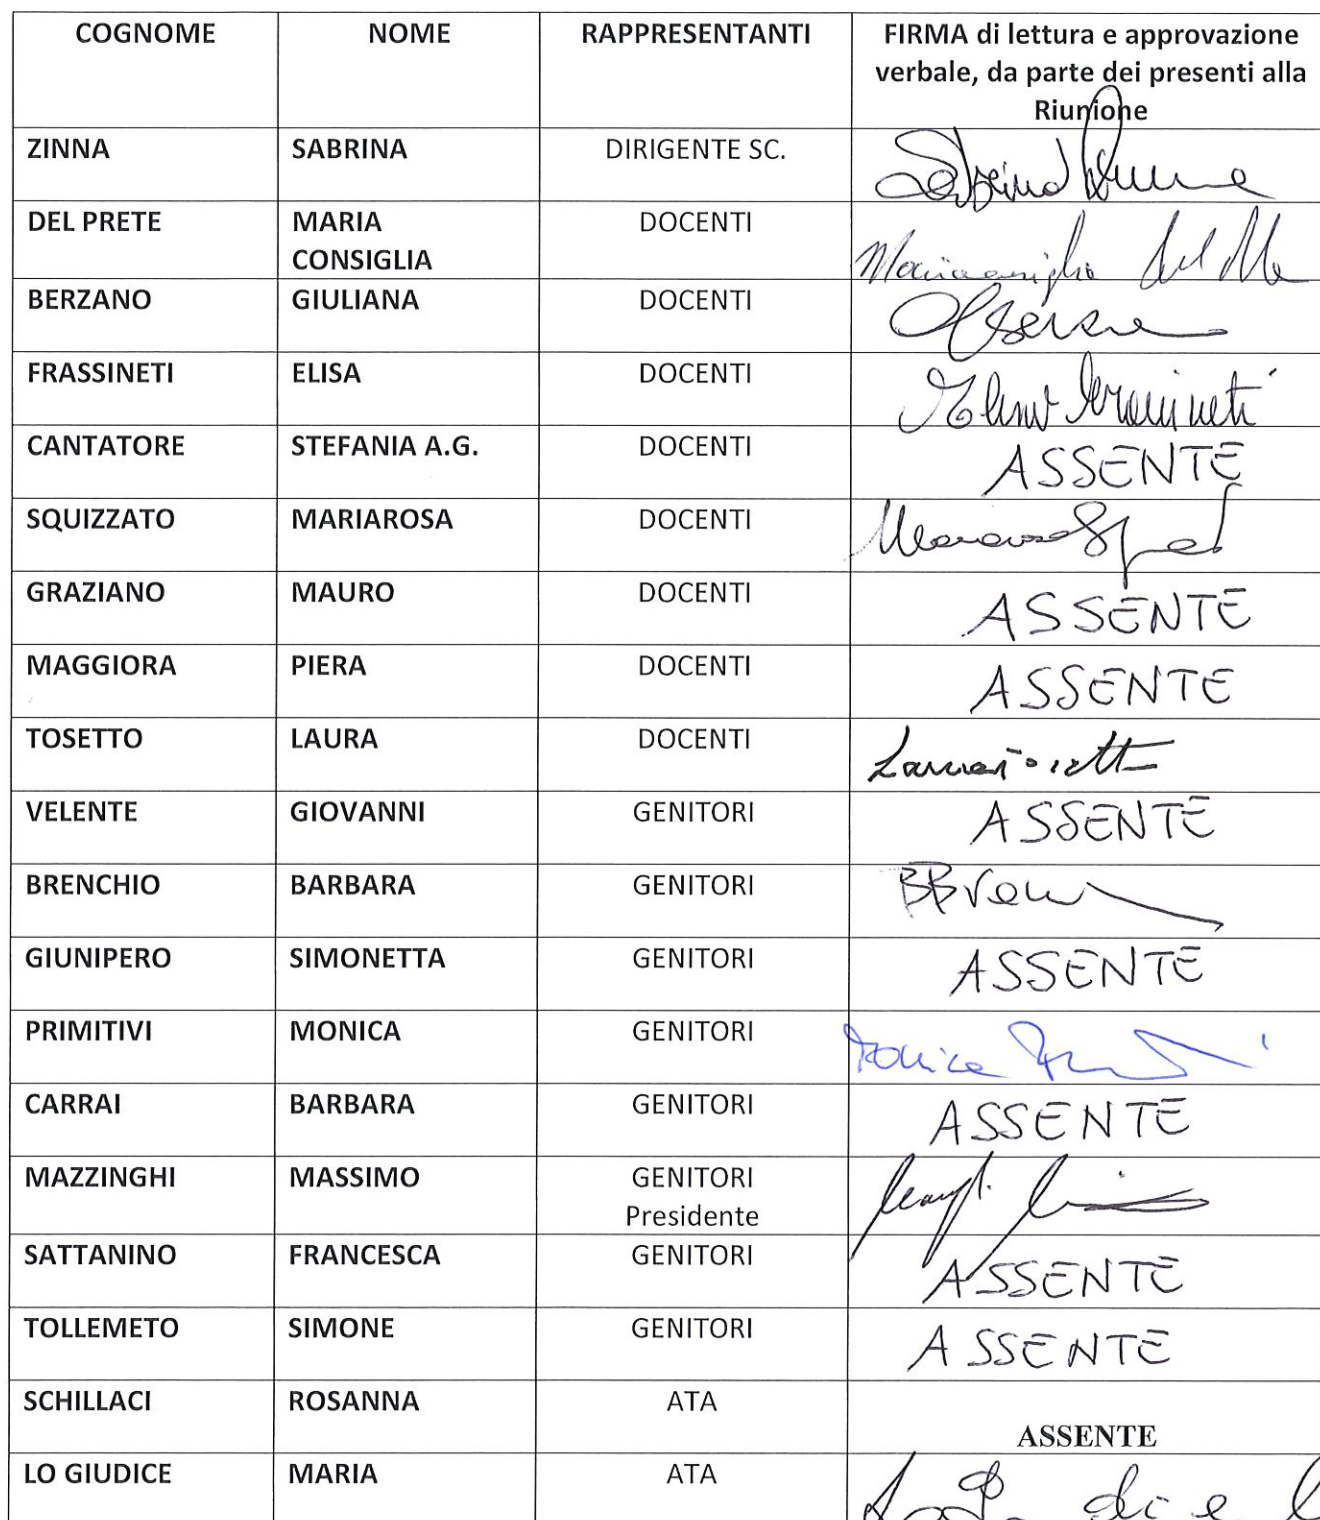 COGNOME NOME RAPPRESENTANTI FIRMA di lettura e approvazione
verbale, da parte dei presenti alla
Riunione
ZINNA SABRINA DIRIGENTE SC. Sabrina
DEL PRETE MARIA DOCENTI
CONSIGLIA Mariaconsiglia Del
BERZANO GIULIANA DOCENTI
FRASSINETI ELISA DOCENTI Elisa Frassineti
CANTATORE STEFANIA A.G. DOCENTI ASSENTE
SQUIZZATO MARIAROSA DOCENTI Mariarosa
GRAZIANO MAURO DOCENTI ASSENTE
MAGGIORA PIERA DOCENTI ASSENTE
TOSETTO LAURA DOCENTI Laura Tosetto
VELENTE GIOVANNI GENITORI ASSENTE
BRENCHIO BARBARA GENITORI
GIUNIPERO SIMONETTA GENITORI ASSENTE
PRIMITIVI MONICA GENITORI Monica
CARRAI BARBARA GENITORI ASSENTE
MAZZINGHI MASSIMO GENITORI
Presidente
SATTANINO FRANCESCA GENITORI ASSENTE
TOLLEMETO SIMONE GENITORI ASSENTE
SCHILLACI ROSANNA ATA
ASSENTE
LO GIUDICE MARIA ATA